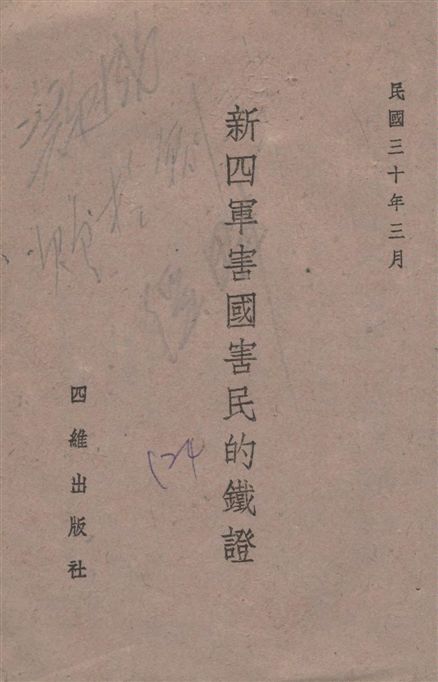 民國三十年三月
新四軍害國害民的鐵證
四維出版社
124